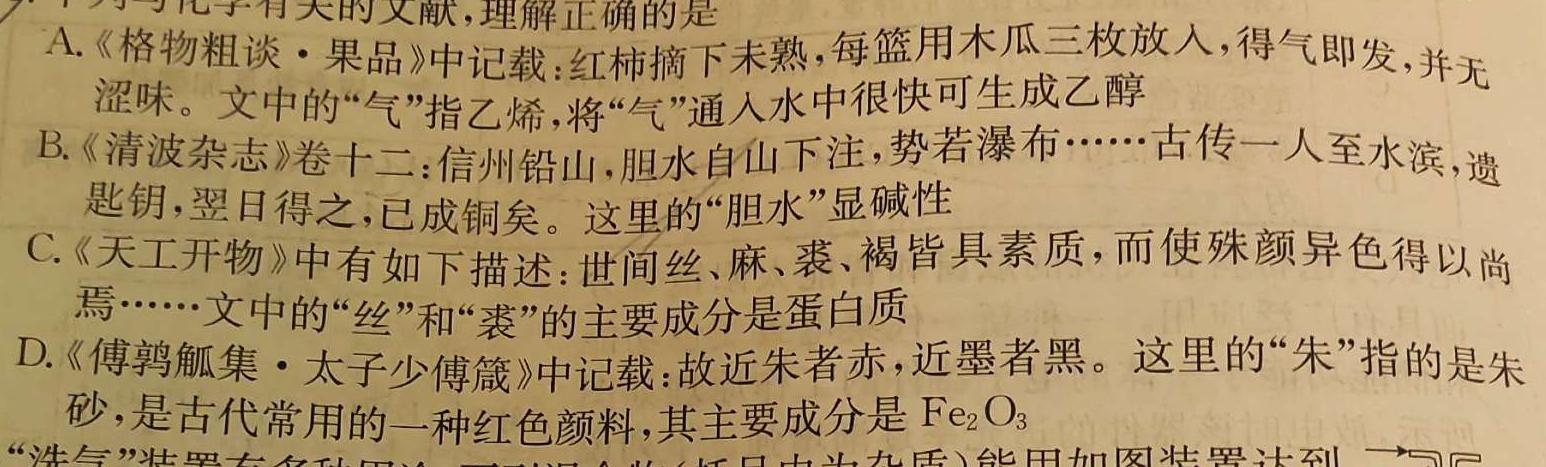 与化学有关的文献,理解正确的是
A.《格物粗谈·果品》中记载:红柿摘下未熟,每篮用木瓜三枚放入,得气即发,并无
涩味。文中的“气”指乙烯,将“气”通入水中很快可生成乙醇
B.《清波杂志》卷十二:信州铅山,胆水自山下注,势若瀑布……古传一人至水滨,遗
匙钥,翌日得之,已成铜矣。这里的“胆水”显碱性
C.《天工开物》中有如下描述:世间丝、麻、裘、褐皆具素质,而使殊颜异色得以尚
焉……文中的“丝”和“裘”的主要成分是蛋白质
D.《傅鹑觚集·太子少傅箴》中记载:故近朱者赤,近墨者黑。这里的“朱”指的是朱
砂,是古代常用的一种红色颜料,其主要成分是 Fe₂O₃
“洗气”装置有多种用途,下列混合物(括号内为杂质)能用如图装置达到